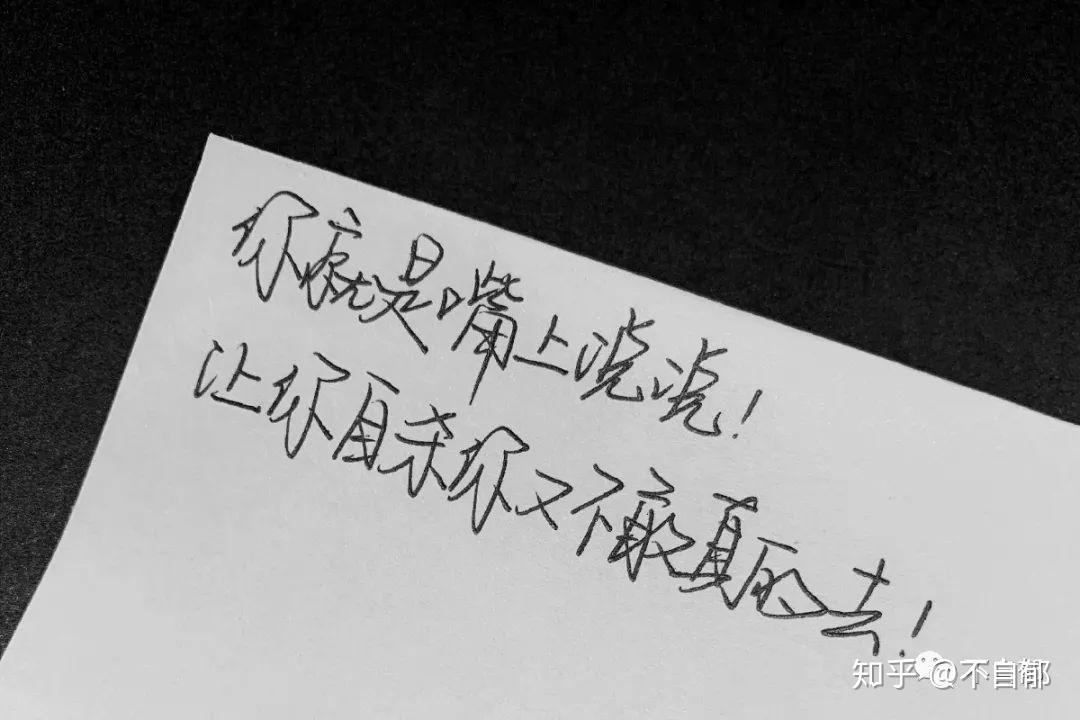 你就是嘴上说说！
让你自杀你又不敢真的去！
知乎 @不自郁